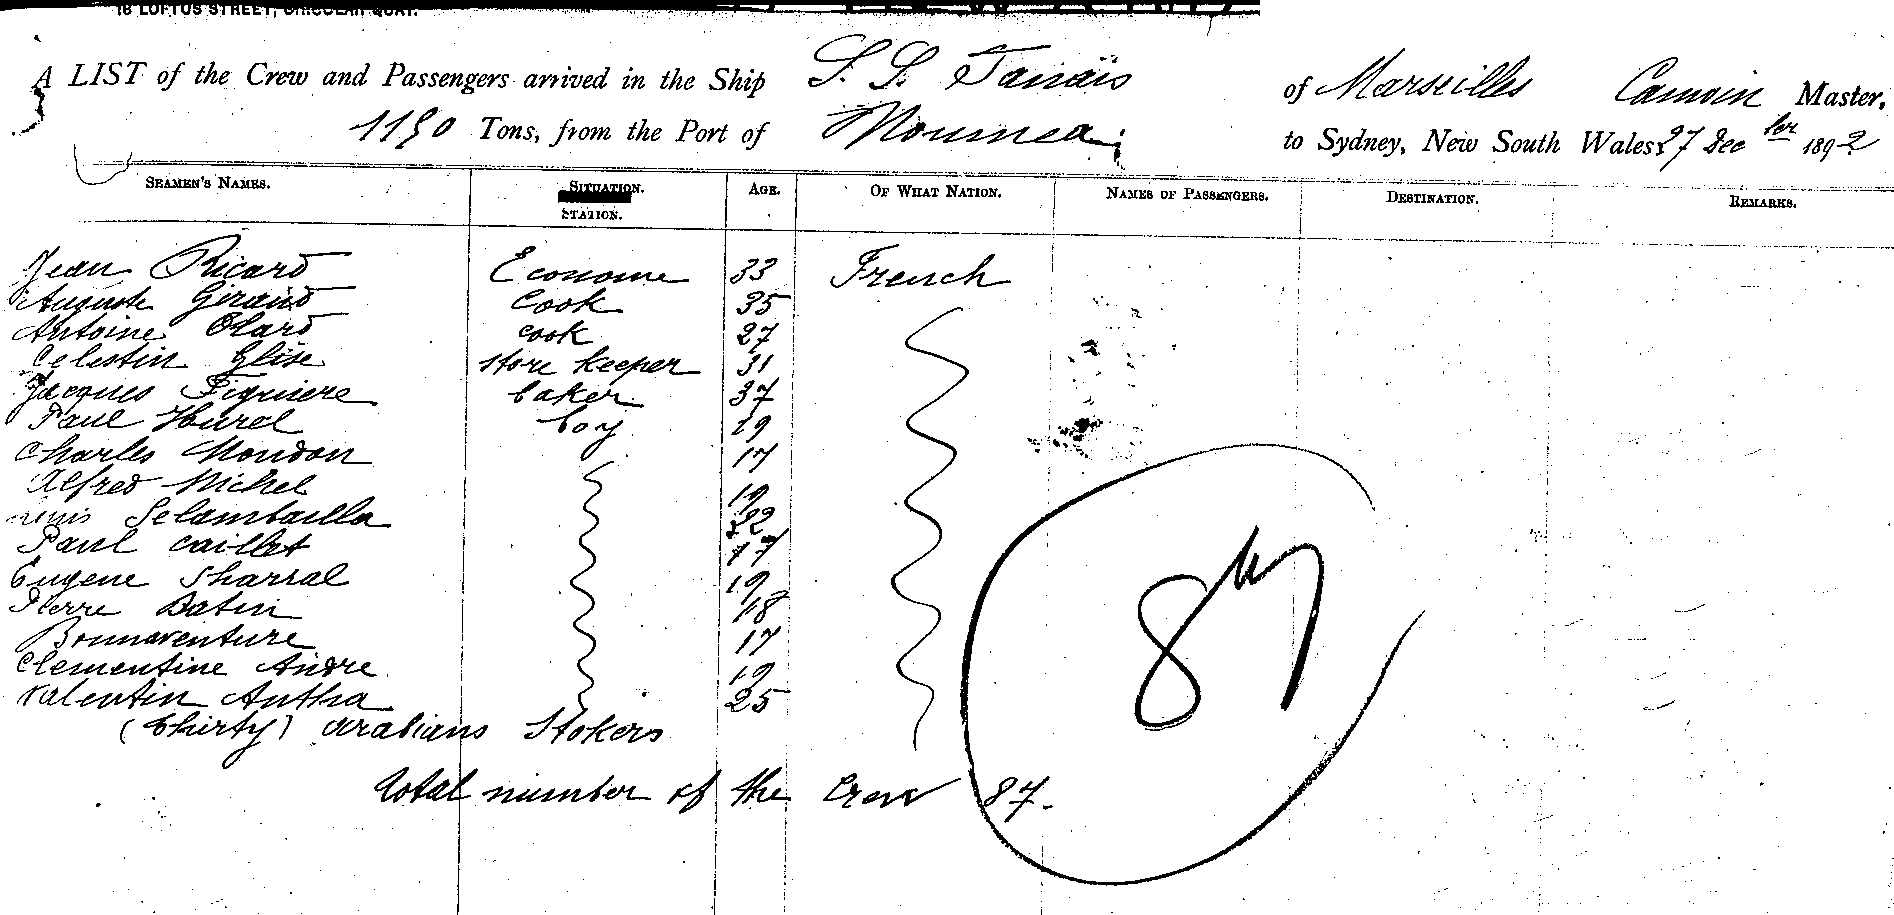 18 LOFTUS STREET, CIRCULAR QUAY.
A LIST of the Crew and Passengers arrived in the Ship S. S. Tanaïs of Marseilles Camoin Master,
1150 Tons, from the Port of Noumea, to Sydney, New South Wales 27 Decber 1892
SEAMEN'S NAMES. SITUATION. STATION. AGE. OF WHAT NATION. NAMES OF PASSENGERS. DESTINATION. REMARKS.
Jean Ricard Econome 33 French
Auguste Giraud Cook 35
Antoine Olard cook 27
Celestin Glise store keeper 31
Jacques Figuiere baker 37
Paul Hurel boy 19
Charles Mondon 17
Alfred Michel 19
Selambailla 22
Paul Caillet 17
Eugene Sharral 19
Pierre Batin 18
Bonnaventure 17
Clementine Andre 19
Valentin Antha 25
(thirty) arabians Stokers
total number of the Crew 87.
87